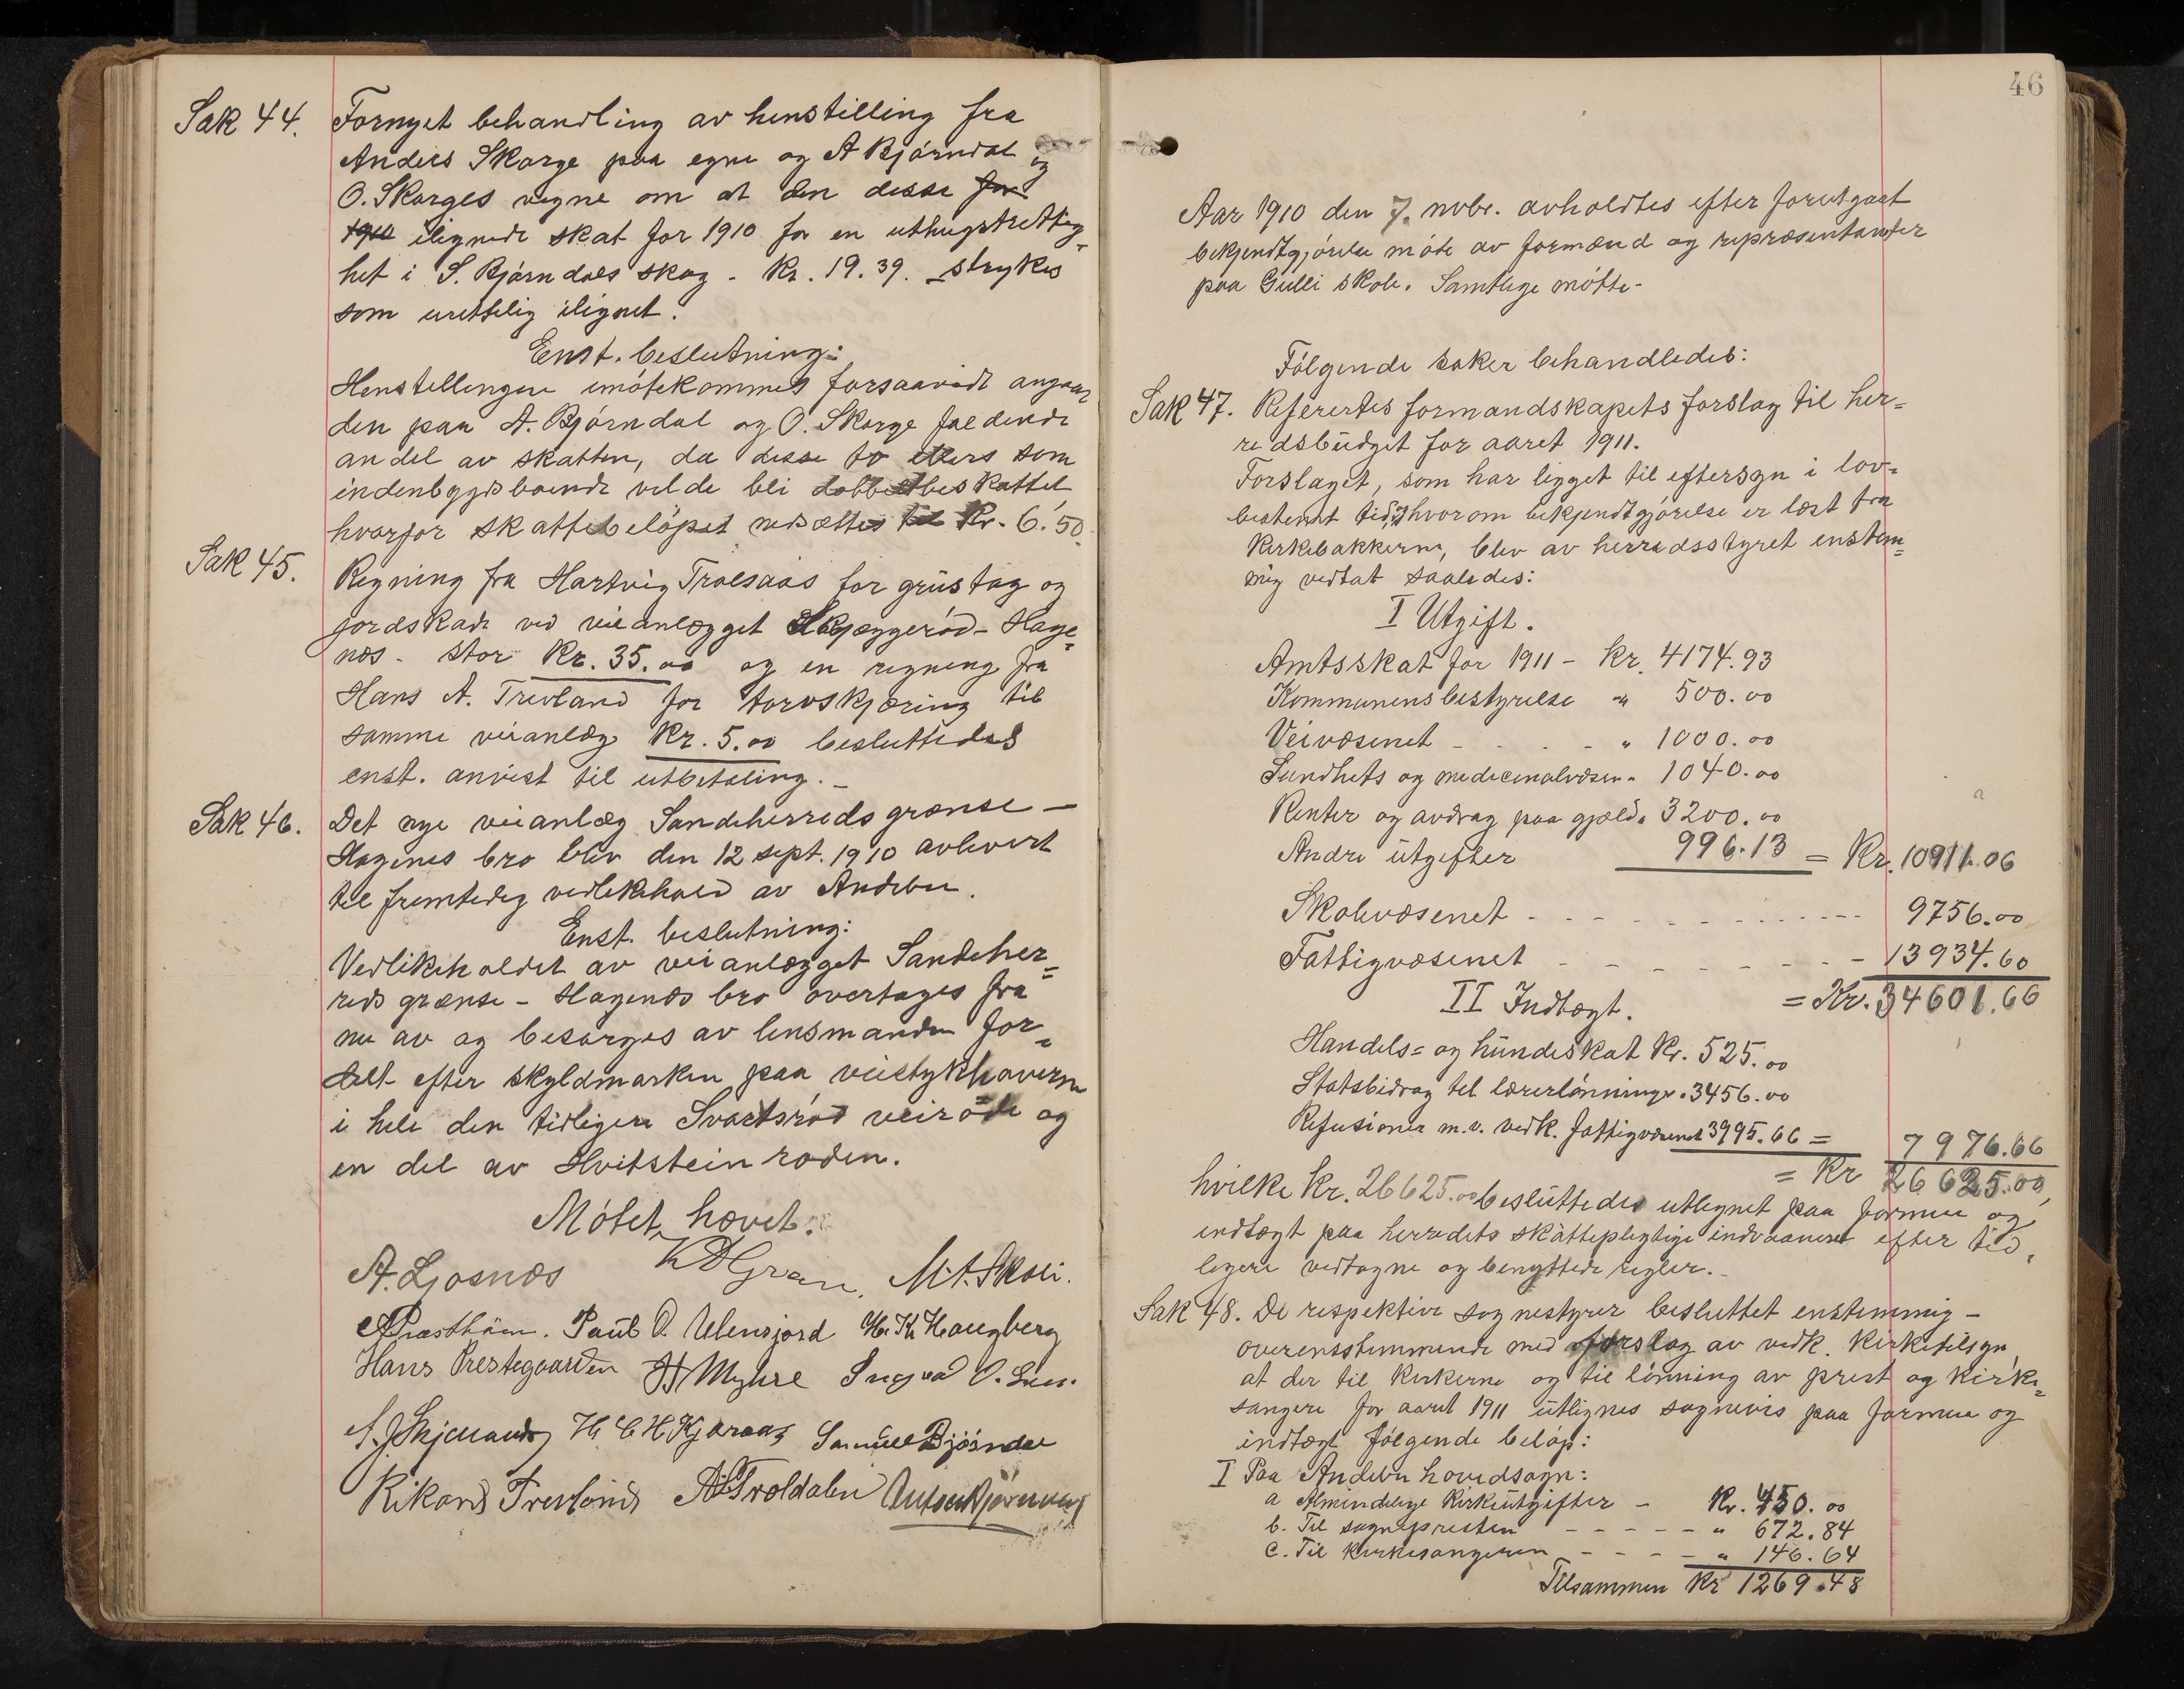 Sak 44. Fornyet behandling av henstilling fra
Anders Skorge paa egne og A Bjørndal og
O. Skorges vegne om at den desse for
1910 ilignede skat for 1910 for en uthugstrettig-
het i S. Bjørndals skog - Kr. 19.39. strykes
som urettelig ilignet.
Enst. beslutning:
Henstillingen imøtekommes forsaavidt angaar
den paa A. Bjørndal og O. Skorge faldende
andel av skatten, da disse to ellers som
indenbygdsboende vilde bli dobbeltbeskattet
hvorfor skattebeløpet nedsættes til Kr. 6.50.
Sak 45. Regning fra Hartvig Trolsaas for grustag og
jordskade ved veianlægget Skjæggerød - Hage-
næs - stor Kr. 35.00 og en regning fra
Hans A. Trevland for torvskjæring til
samme veianlæg Kr. 5.00 besluttedes
enst. anvist til utbetaling. -
Sak 46. Det nye veianlæg Sandeherreds grænse -
Hagenes bro blev den 12 sept. 1910 avlevert
til fremtidig vedlikehold av Andebu.
Enst. beslutning:
Vedlikeholdet av veianlægget Sandeher-
reds grænse - Hagenæs bro overtages fra
nu av og besørges av lensmanden for-
delt efter skyldmarken paa veistykkhaverne
i hele den tidligere Svartsrød veirode og
en del av Hvitstein roden.
Møtet hævet.
A. Ljosnæs K D Gran. M. A. Skoli.
Præsthun. Paul O. Ulensjord H. Kr. Haugberg
Hans Prestegaarden H Myhre Ingvald O. Lien.
H C H Kjæraas Samuel Bjørndal
Rikard Trevland A. Troldalen Anton Bjørndal
46
Aar 1910 den 7. novbr. avholdtes efter forutgaat
bekjendtgjørelse møte av formænd og repræsentanter
paa Gulli skole. Samtlige møtte-
Følgende saker behandledes:
Sak 47. Refërertes formandskapets forslag til her-
redsbudget for aaret 1911.
Forslaget, som har ligget til eftersyn i lov-
bestemt tid, hvorom bekjendtgjørelse er læst fra
Kirkebakkerne, blev av herredsstyret enstem-
mig vedtat saaledes:
I Utgift.
Amtsskat for 1911 - Kr. 4174.93
Kommunensbestyrelse " 500.00
Veivæsenet - - - - " 1000.00
Sundhets og medicinalvæsen " 1040.00
Renter og avdrag paa gjæld " 3200.00
Andre utgifter 996.13 = Kr. 10911.06
Skolevæsenet - - - - - - - - - 9756.00
Fattigvæsenet - - - - - - - - 13934.60
= Kr. 34601.66
II Indtægt.
Handels= og hundeskat Kr. 525.00
Statsbidrag til lærerlønninger " 3456.00
Refusioner m.v. vedk. fattigvæsenet 3995.66 = 7976.66
= Kr 26625.00,
hvilke Kr. 26625.00 besluttedes utlignet paa formue og
indtægt paa herredets skattepligtige indvaanere efter tid-
ligere vedtagne og benyttede regler. -
Sak 48. De respektive sognestyrer besluttet enstemmig -
overensstemmende med forslag av vedk. kirketilsyn
at der til kirkerne og til lønning av prest og kirke-
sangere for aaret 1911 utlignes sognevis paa formue og
indtægt følgende beløp:
I Paa Andebu hovedsogn:
a Almindelige kirkeutgifter - Kr. 450.00
b. Til sognepresten - - - - - " 672.84
c. Til kirkesangeren - - - - " 146.64
Tilsammen Kr 1269.48